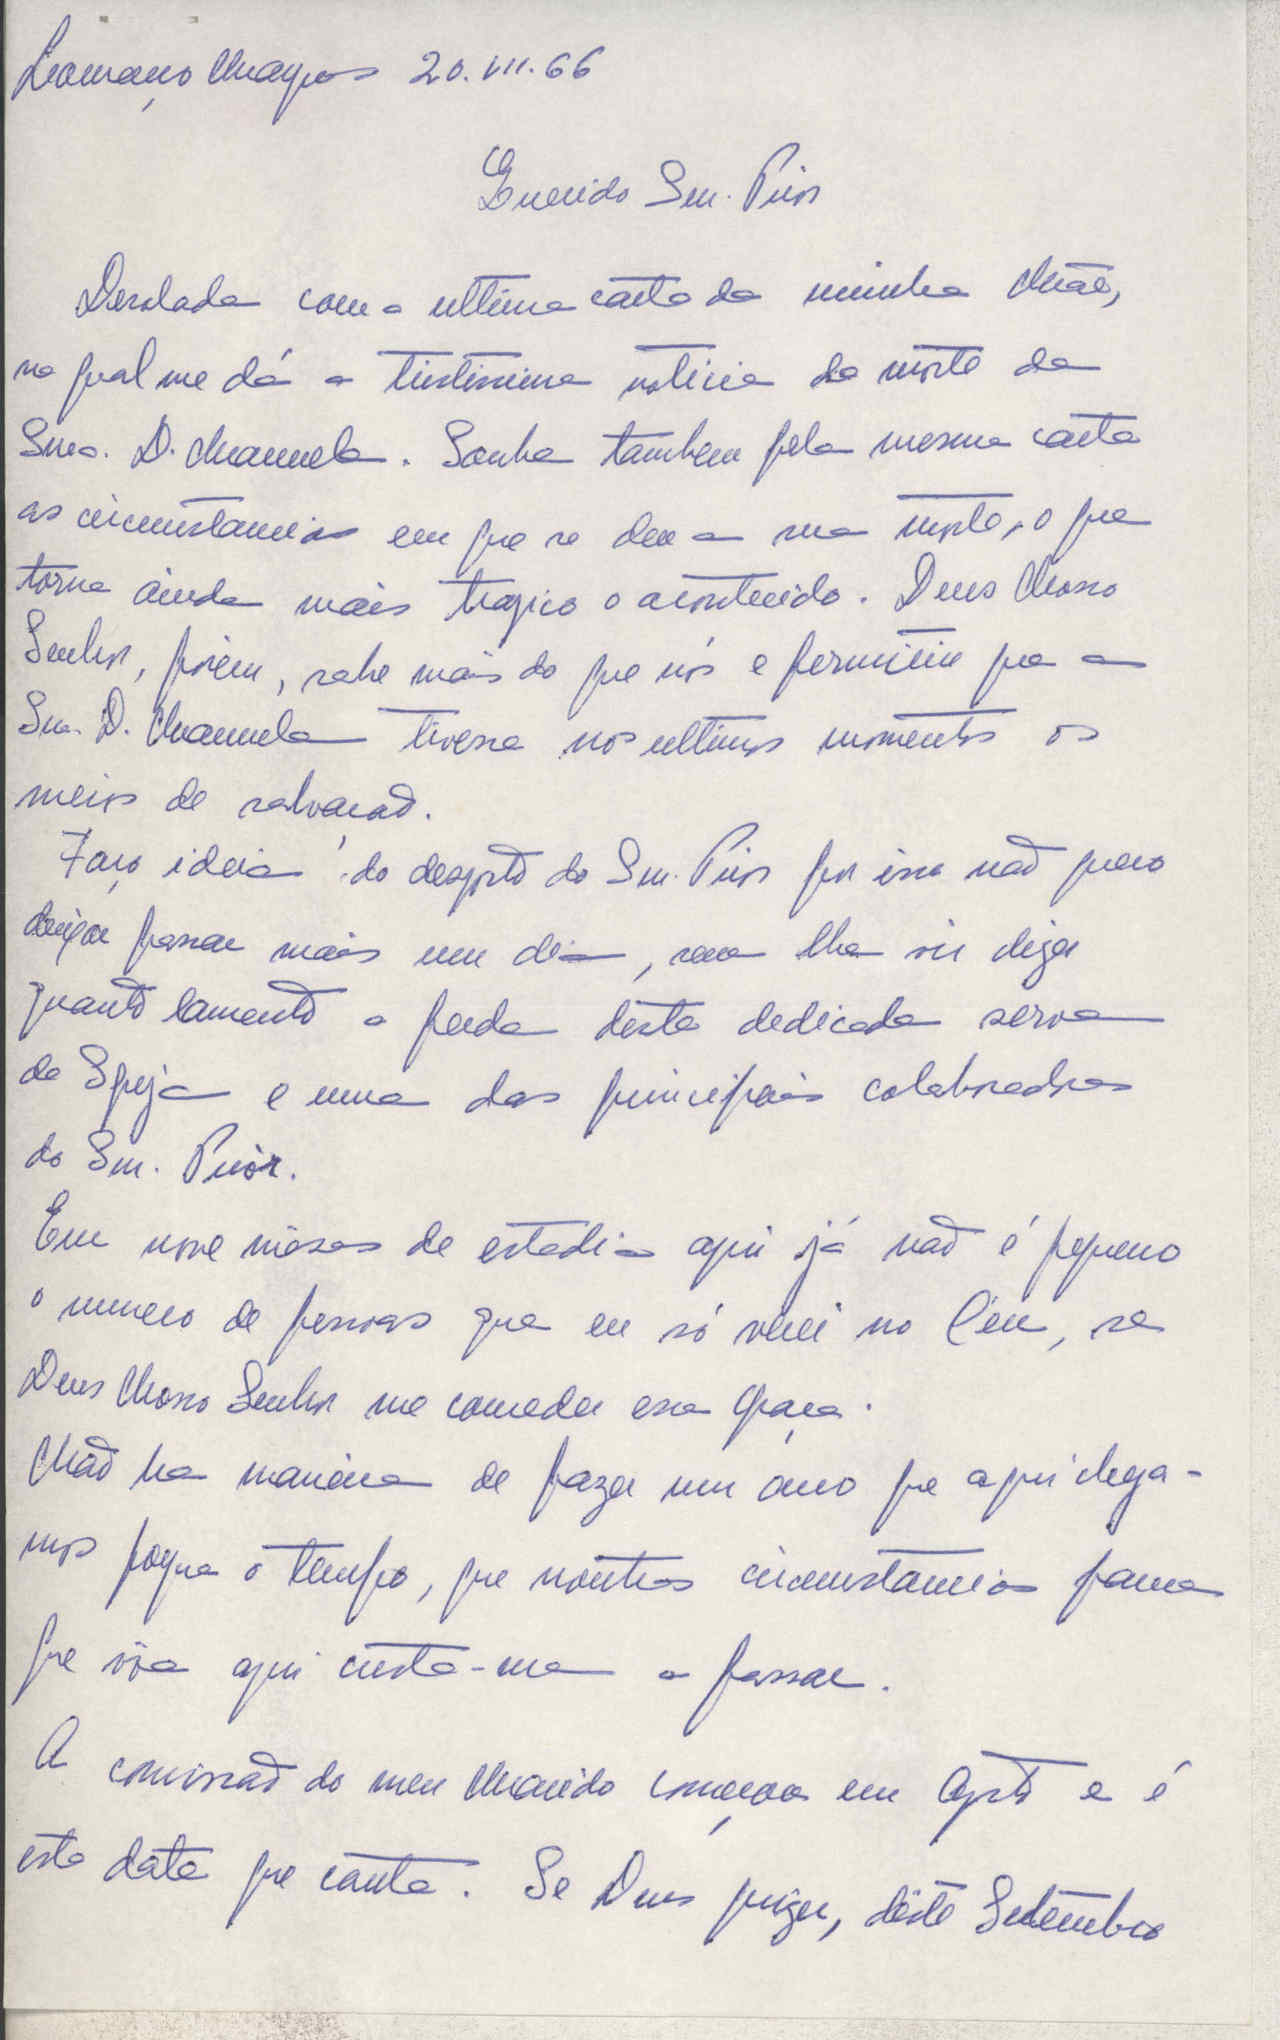 Lourenço Marques 20.VII.66
Querido Snr. Prior
Desolada com a ultima carta da minha Mãe,
na qual me dá a tristissima noticia da morte da
Snra. D. Manuela. Soube tambem pela mesma carta
as circunstancias em que se deu a sua morte, o que
torna ainda mais tragico o acontecido. Deus Nosso
Senhor, porém, sabe mais do que nós e permitiu que a
Sra. D. Manuela tivesse nos ultimos momentos os
meios de salvacão.
Faço ideia do desgosto do Snr. Prior por isso não quero
deixar passar mais um dia, sem lhe vir dizer
quanto lamento a perda desta dedicada serva
da Igreja e uma das principais colaboradoras
do Snr. Prior.
Em nove mêses de estadia aqui já não é pequeno
o numero de pessoas que eu só verei no Céu, se
Deus Nosso Senhor me conceder essa Graça.
Não ha maneira de fazer um ano que aqui chega-
mos porque o tempo, que noutras circunstancias parece
que vôa aqui custa-me a passar.
A comissão do meu Marido começou em Agosto e é
esta data que conta. Se Deus quizer, dêste Setembro